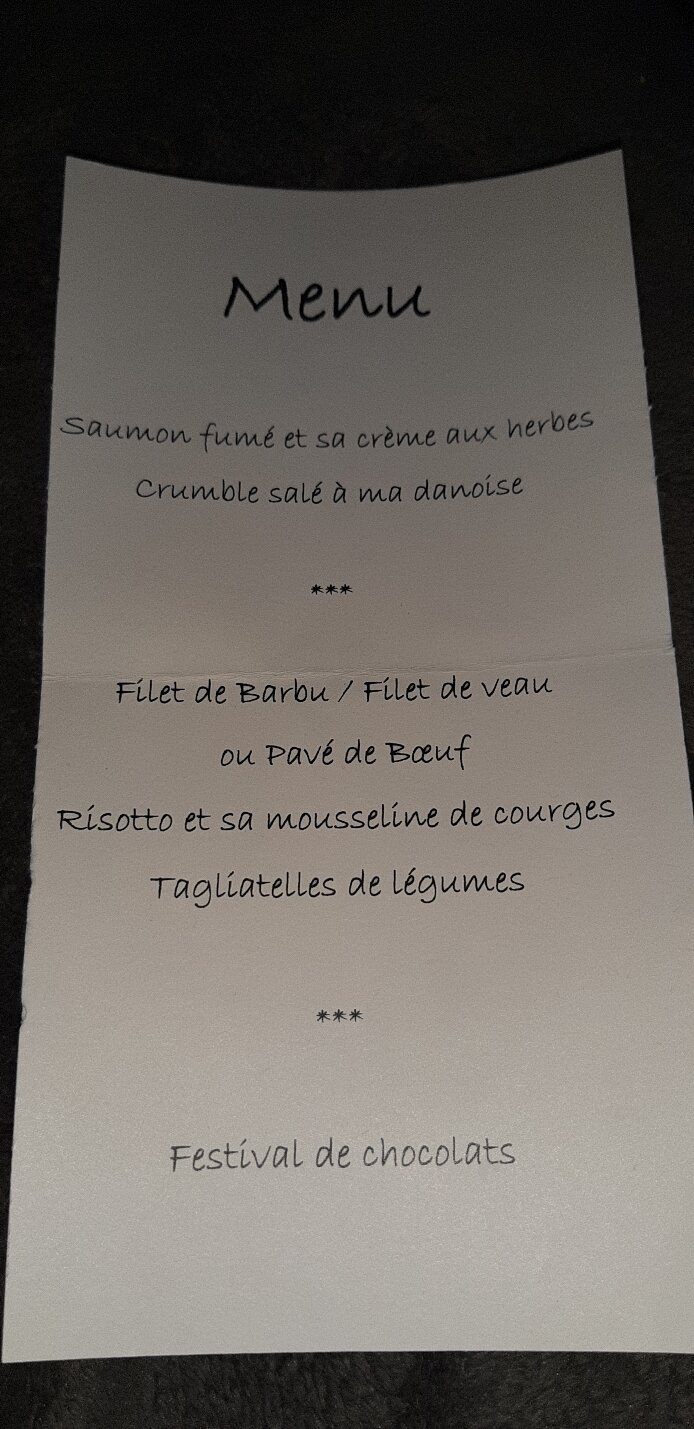 Menu
Saumon fumé et sa crème aux herbes
Crumble salé à ma danoise
***
Filet de Barbu / Filet de veau
ou Pavé de Bœuf
Risotto et sa mousseline de courges
Tagliatelles de légumes
***
Festival de chocolats